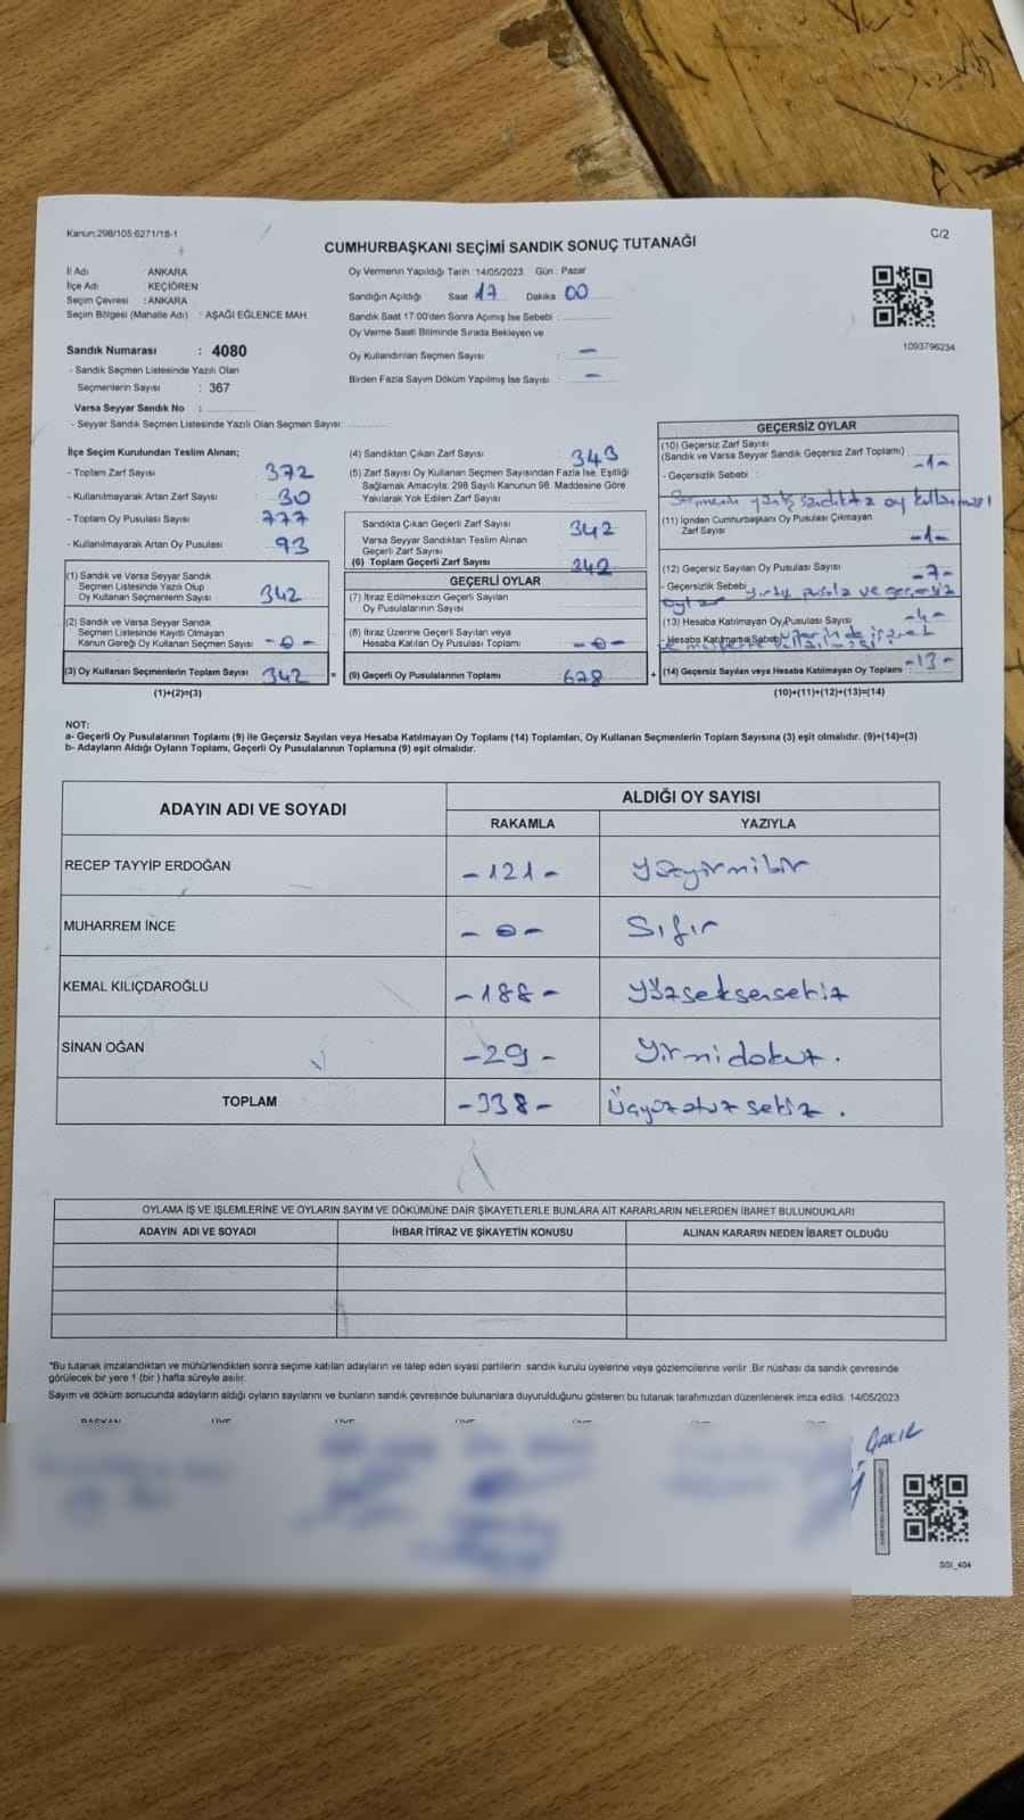 Kanun:298/105:6271/18-1
C/2
CUMHURBAŞKANI SEÇİMİ SANDIK SONUÇ TUTANAĞI
İl Adı ANKARA
İlçe Adı KEÇİÖREN
Seçim Çevresi : ANKARA
Seçim Bölgesi (Mahalle Adı) : AŞAĞI EĞLENCE MAH.
Sandık Numarası : 4080
- Sandık Seçmen Listesinde Yazılı Olan
Seçmenlerin Sayısı : 367
Varsa Seyyar Sandık No :
- Seyyar Sandık Seçmen Listesinde Yazılı Olan Seçmen Sayısı:
Oy Vermenin Yapıldığı Tarih : 14/05/2023 Gün : Pazar
Sandığın Açıldığı Saat 17 Dakika 00
Sandık Saat 17:00'den Sonra Açımış İse Sebebi :
Oy Verme Saati Bitiminde Sırada Bekleyen ve
Oy Kullandırılan Seçmen Sayısı : -
Birden Fazla Sayım Döküm Yapılmış İse Sayısı : -
1093796234
İlçe Seçim Kurulundan Teslim Alınan;
- Toplam Zarf Sayısı 372
- Kullanılmayarak Artan Zarf Sayısı 30
- Toplam Oy Pusulası Sayısı 777
- Kullanılmayarak Artan Oy Pusulası 93
(1) Sandık ve Varsa Seyyar Sandık
Seçmen Listesinde Yazılı Olup
Oy Kullanan Seçmenlerin Sayısı 342
(2) Sandık ve Varsa Seyyar Sandık
Seçmen Listesinde Kayıtlı Olmayan
Kanun Gereği Oy Kullanan Seçmen Sayısı -0-
(3) Oy Kullanan Seçmenlerin Toplam Sayısı 342
(1)+(2)=(3)
(4) Sandıktan Çıkan Zarf Sayısı 343
(5) Zarf Sayısı Oy Kullanan Seçmen Sayısından Fazla İse, Eşitliği
Sağlamak Amacıyla; 298 Sayılı Kanunun 98. Maddesine Göre
Yakılarak Yok Edilen Zarf Sayısı
Sandıkta Çıkan Geçerli Zarf Sayısı 342
Varsa Seyyar Sandıktan Teslim Alınan
Geçerli Zarf Sayısı
(6) Toplam Geçerli Zarf Sayısı 342
GEÇERLİ OYLAR
(7) İtiraz Edilmeksizin Geçerli Sayılan
Oy Pusulalarının Sayısı
(8) İtiraz Üzerine Geçerli Sayılan veya
Hesaba Katılan Oy Pusulası Toplamı -0-
= (9) Geçerli Oy Pusulalarının Toplamı 678
GEÇERSİZ OYLAR
(10) Geçersiz Zarf Sayısı
(Sandık ve Varsa Seyyar Sandık Geçersiz Zarf Toplamı) -1-
- Geçersizlik Sebebi :
Seçmenin yanlış sandıkta oy kullanması
(11) İçinden Cumhurbaşkanı Oy Pusulası Çıkmayan
Zarf Sayısı -1-
(12) Geçersiz Sayılan Oy Pusulası Sayısı -7-
- Geçersizlik Sebebi Yırtık pusula ve geçersiz
oylar
(13) Hesaba Katılmayan Oy Pusulası Sayısı -4-
- Hesaba Katılmama Sebebi
+ (14) Geçersiz Sayılan veya Hesaba Katılmayan Oy Toplamı -13-
(10)+(11)+(12)+(13)=(14)
NOT:
a- Geçerli Oy Pusulalarının Toplamı (9) ile Geçersiz Sayılan veya Hesaba Katılmayan Oy Toplamı (14) Toplamları, Oy Kullanan Seçmenlerin Toplam Sayısına (3) eşit olmalıdır. (9)+(14)=(3)
b- Adayların Aldığı Oyların Toplamı, Geçerli Oy Pusulalarının Toplamına (9) eşit olmalıdır.
ADAYIN ADI VE SOYADI
ALDIĞI OY SAYISI
RAKAMLA YAZIYLA
RECEP TAYYİP ERDOĞAN -121- Yüzyirmibir
MUHARREM İNCE -0- Sıfır
KEMAL KILIÇDAROĞLU -188- Yüzseksensekiz
SİNAN OĞAN -29- Yirmidokuz.
TOPLAM -338- Üçyüzotuzsekiz.
OYLAMA İŞ VE İŞLEMLERİNE VE OYLARIN SAYIM VE DÖKÜMÜNE DAİR ŞİKAYETLERLE BUNLARA AİT KARARLARIN NELERDEN İBARET BULUNDUKLARI
ADAYIN ADI VE SOYADI İHBAR İTİRAZ VE ŞİKAYETİN KONUSU ALINAN KARARIN NEDEN İBARET OLDUĞU
"Bu tutanak imzalandıktan ve mühürlendikten sonra seçime katılan adayların ve talep eden siyasi partilerin sandık kurulu üyelerine veya gözlemcilerine verilir. Bir nüshası da sandık çevresinde
görülecek bir yere 1 (bir) hafta süreyle asılır.
Sayım ve döküm sonucunda adayların aldığı oyların sayılarını ve bunların sandık çevresinde bulunanlara duyurulduğunu gösteren bu tutanak tarafımızdan düzenlenerek imza edildi. 14/05/2023